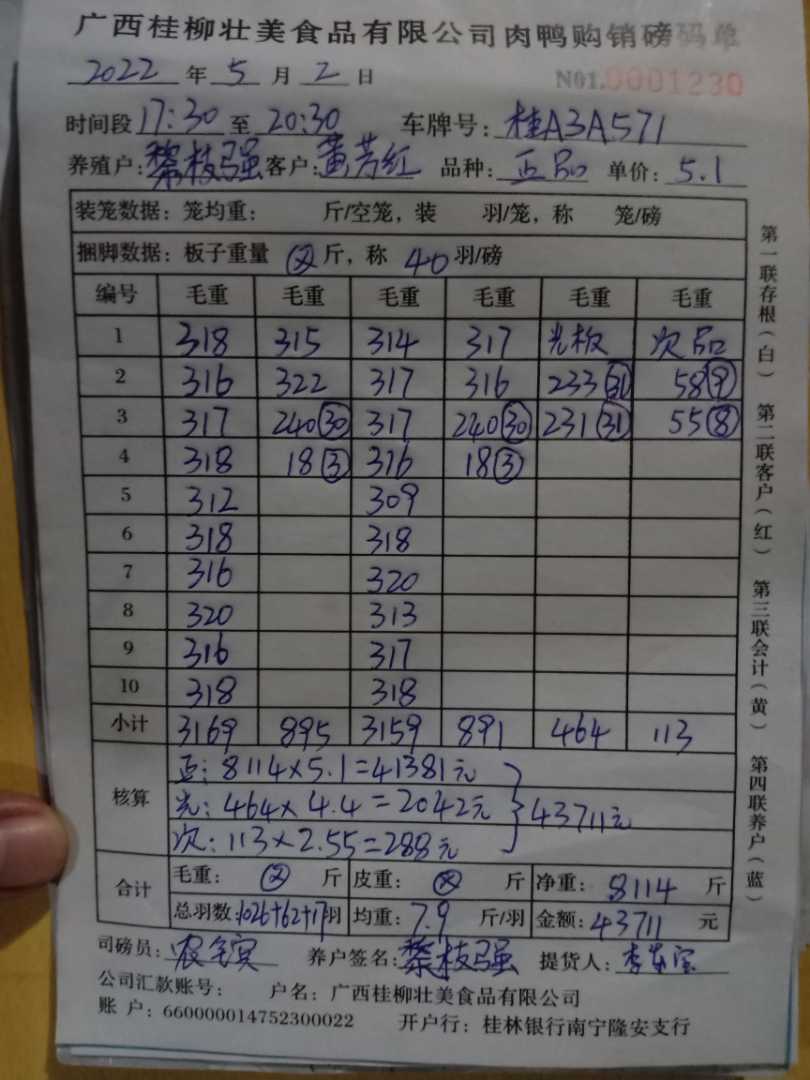 广西桂柳壮美食品有限公司肉鸭购销磅码单
2022 年 5 月 2 日 N01.0001230
时间段 17:30 至 20:30 车牌号: 桂A3A571
养殖户: 黎枝强 客户: 黄芳红 品种: 正品 单价: 5.1
装笼数据: 笼均重: 斤/空笼, 装 羽/笼, 称 笼/磅
捆脚数据: 板子重量 斤, 称 40 羽/磅
编号 毛重 毛重 毛重 毛重 毛重 毛重
1 318 315 314 317 光板 次品
2 316 322 317 316 233(31) 58(9)
3 317 240(30) 317 240(30) 231(31) 55(8)
4 318 18(3) 316 18(3)
5 312 309
6 318 318
7 316 320
8 320 313
9 316 317
10 318 318
小计 3169 895 3159 891 464 113
核算
正: 8114×5.1=41381元
光: 464×4.4=2042元
次: 113×2.55=288元
43711元
合计
毛重: 斤 皮重: 斤 净重: 8114 斤
总羽数: 1026+62+17羽 均重: 7.9 斤/羽 金额: 43711 元
司磅员: 养户签名: 黎枝强 提货人:
公司汇款账号: 户名: 广西桂柳壮美食品有限公司
账户: 660000014752300022 开户行: 桂林银行南宁隆安支行
第一联存根(白) 第二联客户(红) 第三联会计(黄) 第四联养户(蓝)